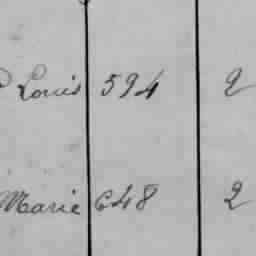 Louis 594 2
Marie 648 2